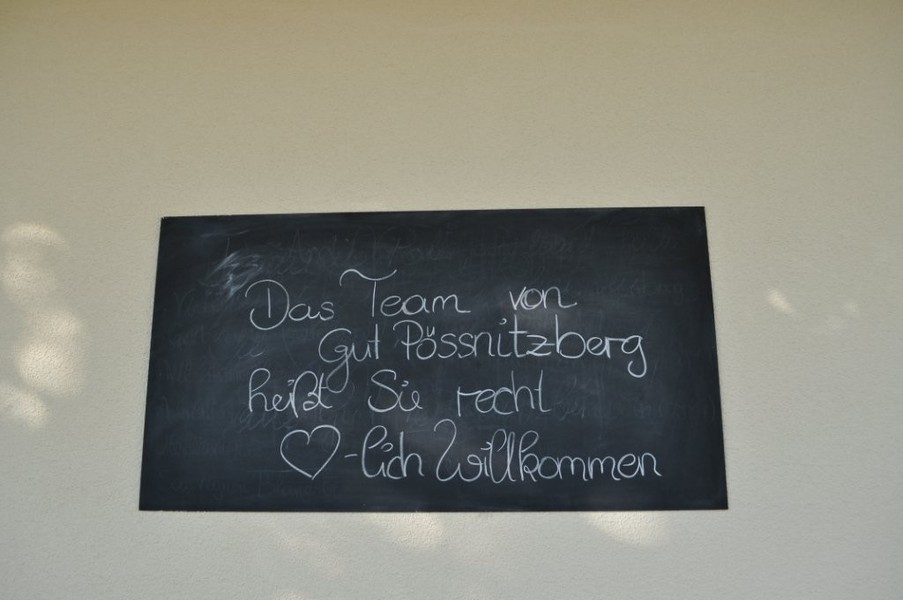 Das Team von
Gut Pössnitzberg
heißt Sie recht
♡-lich Willkommen